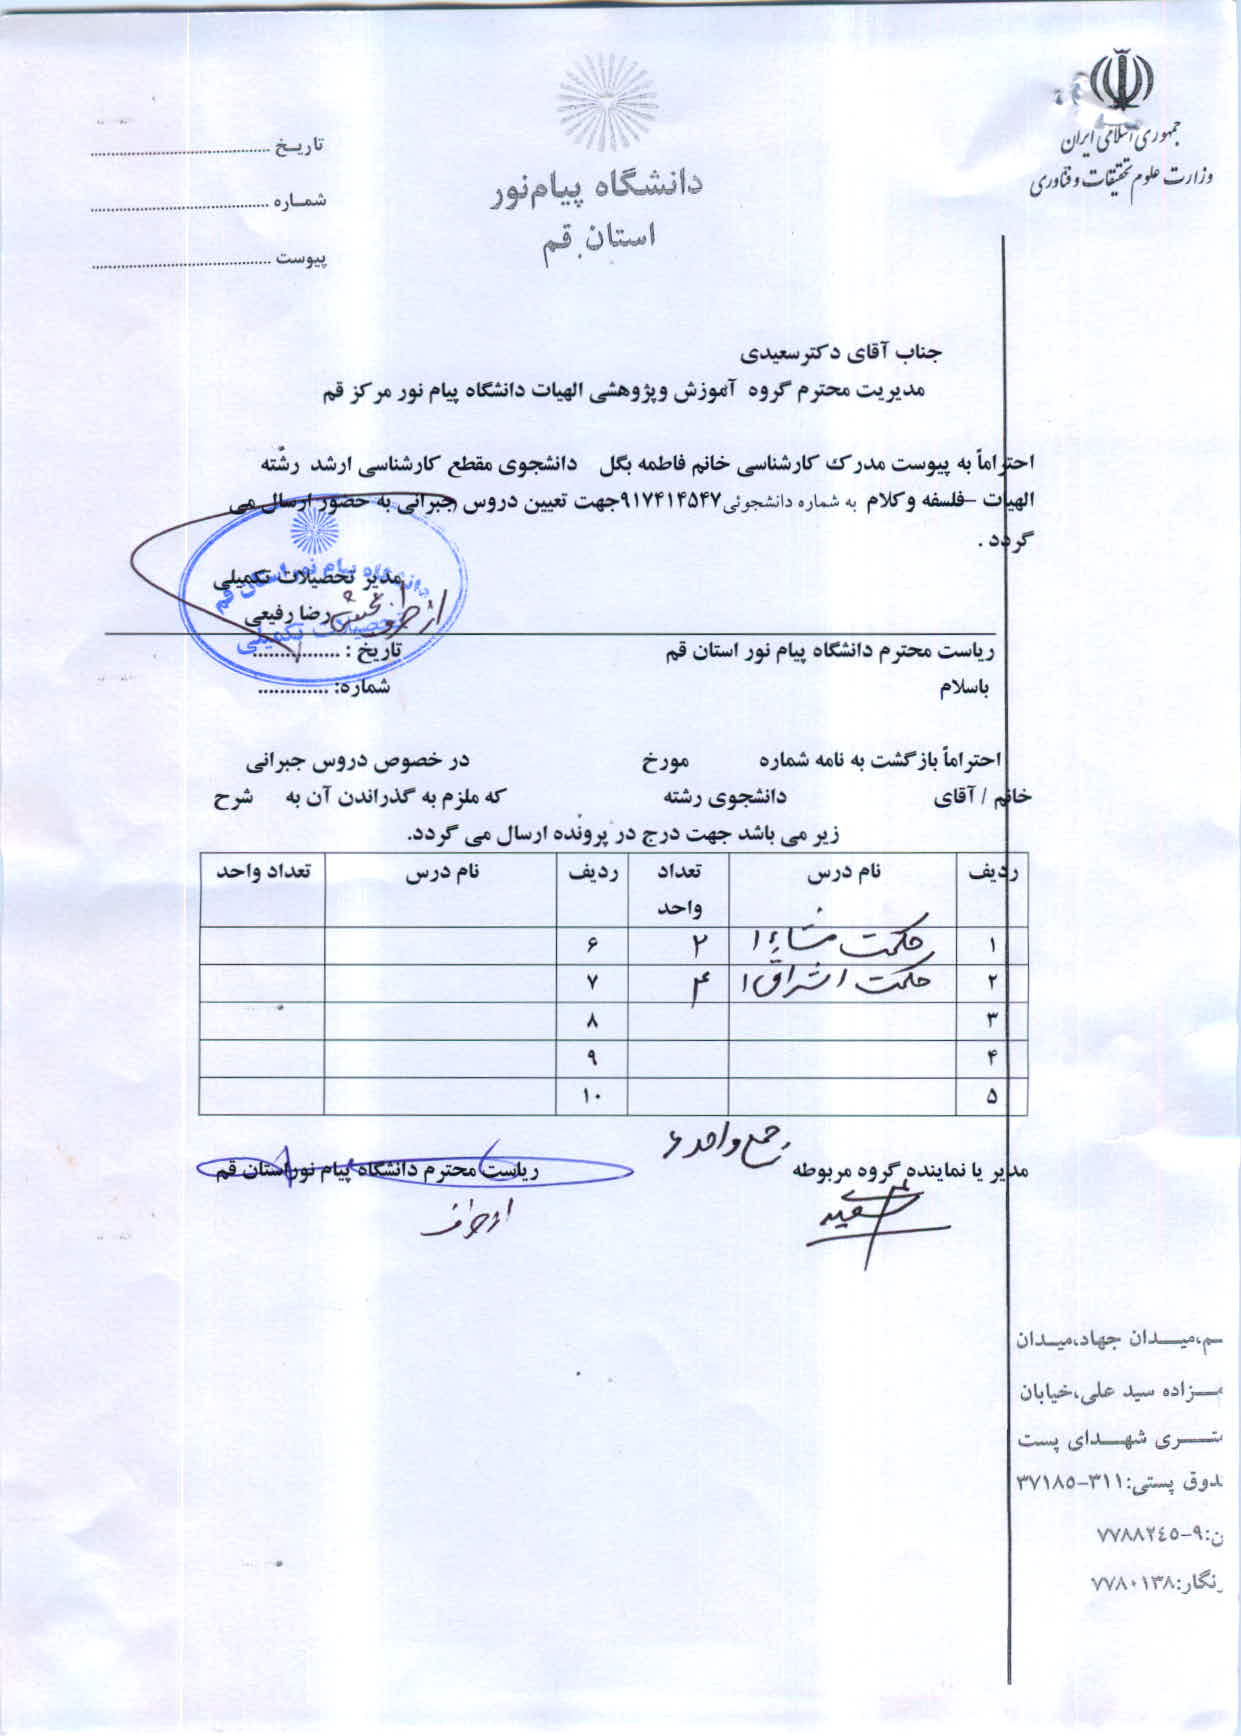 جمهوری اسلامی ایران
وزارت علوم تحقیقات و فناوری
دانشگاه پیام‌نور
استان قم
تاریـخ ............................................
شمـاره ............................................
پیوست ............................................
جناب آقای دکترسعیدی
مدیریت محترم گروه آموزش وپژوهشی الهیات دانشگاه پیام نور مرکز قم
احتراماً به پیوست مدرک کارشناسی خانم فاطمه بگل دانشجوی مقطع کارشناسی ارشد رشته
الهیات –فلسفه وکلام به شماره دانشجوئی۹۱۷۴۱۴۵۴۷جهت تعیین دروس جبرانی به حضور ارسال می
گردد .
دانشگاه پیام نور استان قم
تحصیلات تکمیلی
مدیر تحصیلات تکمیلی
رضا رفیعی
از طرف
ریاست محترم دانشگاه پیام نور استان قم
تاریخ : ................
باسلام
شماره: .............
احتراماً بازگشت به نامه شماره مورخ در خصوص دروس جبرانی
خانم / آقای دانشجوی رشته که ملزم به گذراندن آن به شرح
زیر می باشد جهت درج در پرونده ارسال می گردد.
ردیف نام درس تعداد واحد ردیف نام درس تعداد واحد
۱ حکمت مشاء ۱ ۲ ۶
۲ حکمت اشراق ۱ ۴ ۷
۳ ۸
۴ ۹
۵ ۱۰
جمع واحد ۶
مدیر یا نماینده گروه مربوطه
ریاست محترم دانشگاه پیام نوراستان قم
سعیدی
از طرف
ـم،میـــدان جهاد،میـدان
ـزاده سید علی،خیابان
ـری شهـدای پست
ـدوق پستی:۳۱۱-۳۷۱۸۵
ن:۹-۷۷۸۸۲٤٥
نگار:۷۷۸۰۱۳۸